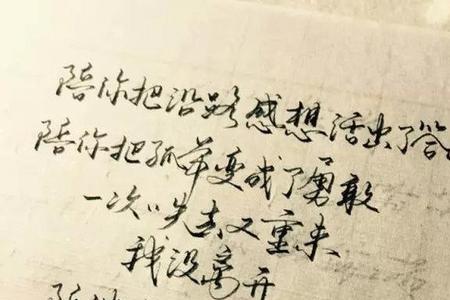 陪你把沿路感想活出了答
陪你把孤单变成了勇敢
一次次失去又重来
我没离开
陪你